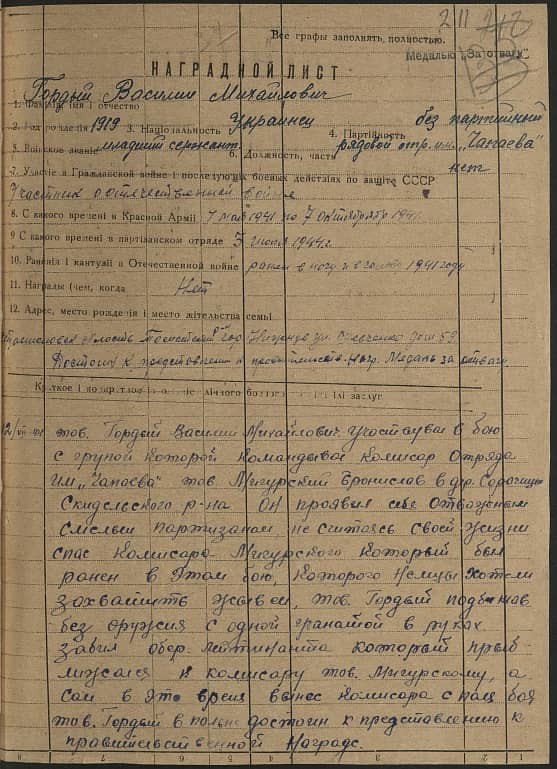 2 11
Все графы заполнять, полностью.
Медалью „За отвагу"
НАГРАДНОЙ ЛИСТ
Гордый Василий Михайлович
1. Фамилия, імя і отчество
2. Год рождения 1919 3. Національность Украинец 4. Партійность без партийный
5. Воинское званіе младший сержант. 6. Должность, части рядовой отр. им. „Чапаева"
7. Участіе в Гражданской войне і последующих боевых действіях по защите СССР нет
Участник отечественной войны
8. С какого времені в Красной Арміі 7 мая 1941 по 7 октября 1941
9 С какого времені в партізанском отряде 3 июня 1944г.
10. Раненія і кантузіі в Отечественной войне ранен в ногу и в 1941 году
11. Награды (чем, когда Нет
12. Адрес, место рожденія і место жітельства семьі
гор. ул. дом 59.
Достоин к представлению к Нагр. Медаль за отвагу.
Краткое і конкретное лічного ілі заслуг
тов. Гордый Василий Михайлович участвуя в бою
с групой которой командывал комисар отряда
им „Чапаева" тов Мигурский Бронислав в др.
Скидельского р-на Он проявил себя отважным
смелым партизаном, не считаясь своей жизни
спас комисара Мигурского который был
ранен в этом бою, которого немцы хотели
захватить живьем, тов. Гордый подбежав
без оружия с одной гранатой в руках
забил обер. лейтинанта который приб-
лижался к комисару тов. Мигурскому, а
сам в это время вынес комисара с поля боя
тов. Гордый в полне достоин к представлению к
правительственной Награде.